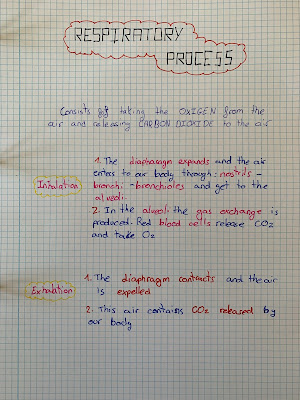 RESPIRATORY
PROCESS
Consists of taking the OXIGEN from the
air and releasing CARBON DIOXIDE to the air
Inhalation
1. The diaphragm expands and the air
enters to our body through: nostrils -
bronchi - bronchioles and get to the
alveoli.
2. In the alveoli the gas exchange is
produced. Red blood cells release CO2
and take O2
Exhalation
1. The diaphragm contracts and the air
is expelled
2. This air contains CO2 released by
our body